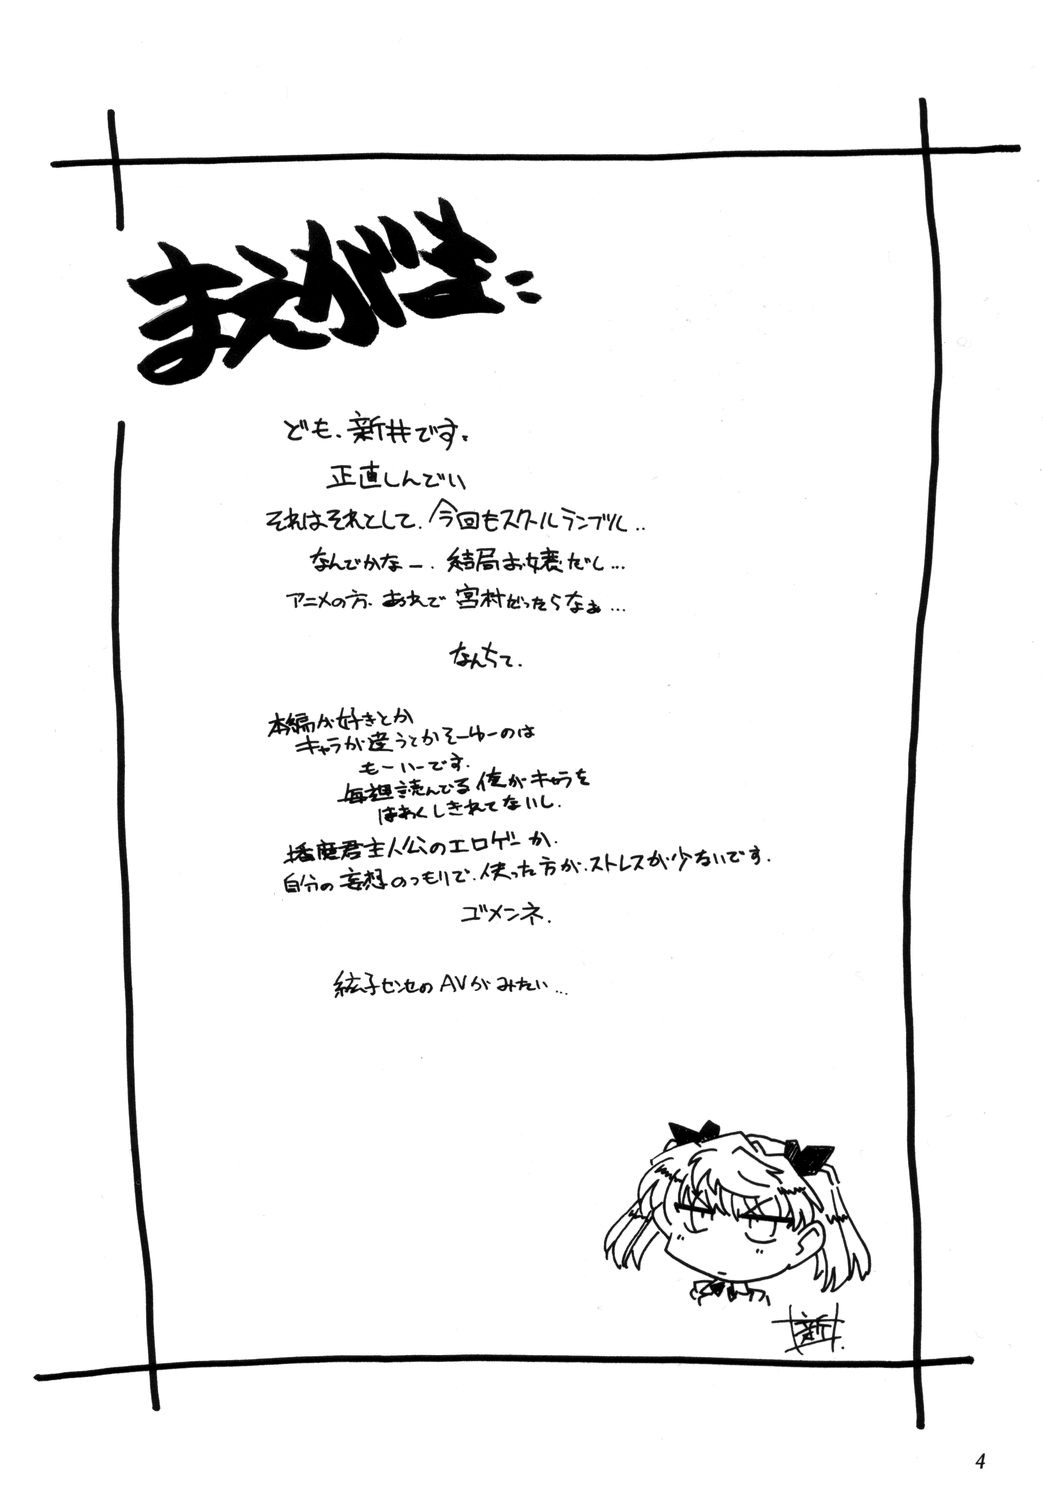 まえがき:
ども、新井です。
正直しんでい
それはそれとして、今回もスクールランブル..
なんでかなー、結局お嬢だし...
アニメの方、あれで宮村だったらなぁ...
なんちて.
本編が好きとか
キャラが違うとかそーゆーのは
もーいーです.
毎週読んでる俺がキャラを
はあくしきれてないし.
播磨君主人公のエロゲーか、
自分の妄想のつもりで、使った方が、ストレスが少ないです.
ゴメンネ.
絃子センセのAVがみたい...
新井
4